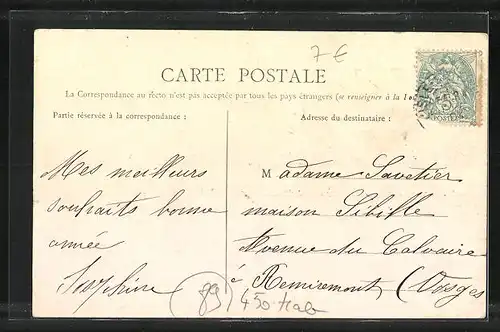 7 €
CARTE POSTALE
La Correspondance au recto n'est pas acceptée par tous les pays étrangers (se renseigner à la
Partie réservée à la correspondance :
Adresse du destinataire :
Mes meilleurs
souhaits bonne
année
Joséphine
Madame Savetier
maison Sibille
Avenue du Calvaire
à Remiremont (Vosges
89
5
POSTES